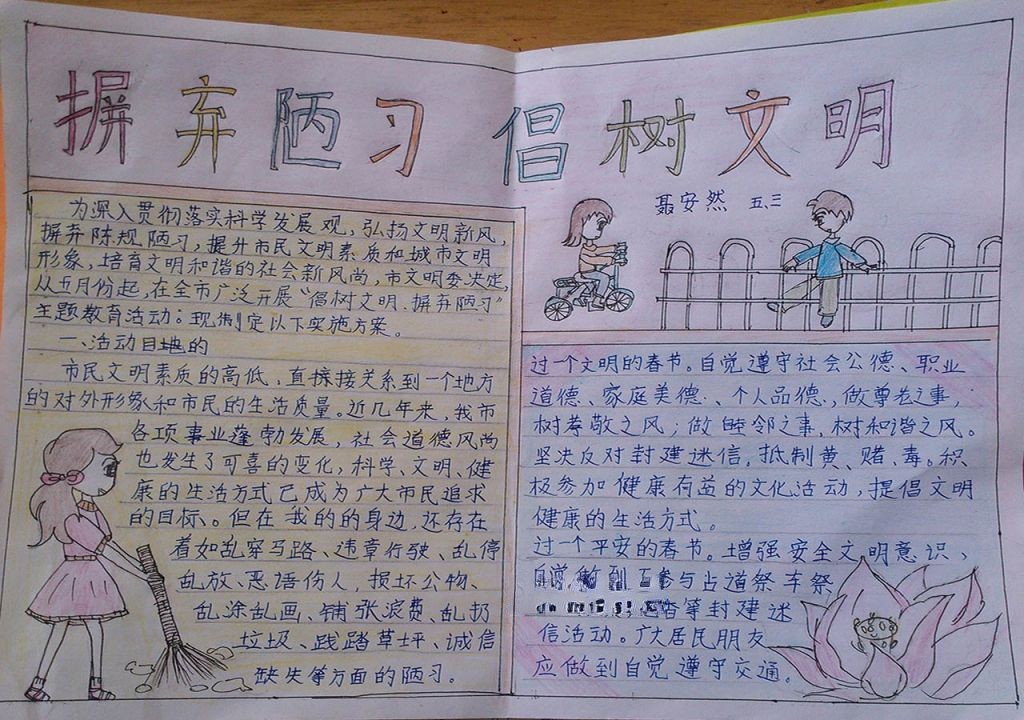 摒弃陋习 倡树文明
为深入贯彻落实科学发展观，弘扬文明新风，
摒弃陈规陋习，提升市民文明素质和城市文明
形象，培育文明和谐的社会新风尚，市文明委决定，
从五月份起，在全市广泛开展“倡树文明、摒弃陋习”
主题教育活动：现制定以下实施方案。
一、活动目地的
市民文明素质的高低，直接关系到一个地方
的对外形象和市民的生活质量。近几年来，我市
各项事业蓬勃发展，社会道德风尚
也发生了可喜的变化，科学、文明、健
康的生活方式已成为广大市民追求
的目标。但在我的的身边，还存在
着如乱穿马路、违章行驶、乱停
乱放、恶语伤人，损坏公物、
乱涂乱画、铺张浪费、乱扔
垃圾、践踏草坪、诚信
缺失等方面的陋习。
聂安然 五、三
过一个文明的春节。自觉遵守社会公德、职业
道德、家庭美德、个人品德，做尊老之事，
树尊敬之风；做睦邻之事，树和谐之风。
坚决反对封建迷信，抵制黄、赌、毒。积
极参加健康有益的文化活动，提倡文明
健康的生活方式。
过一个平安的春节。增强安全文明意识、
自觉做到不参与占道祭车祭
等封建迷
信活动。广大居民朋友
应做到自觉遵守交通。